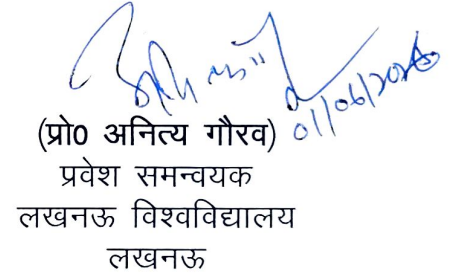 (प्रो0 अनित्य गौरव)
प्रवेश समन्वयक
लखनऊ विश्वविद्यालय
लखनऊ